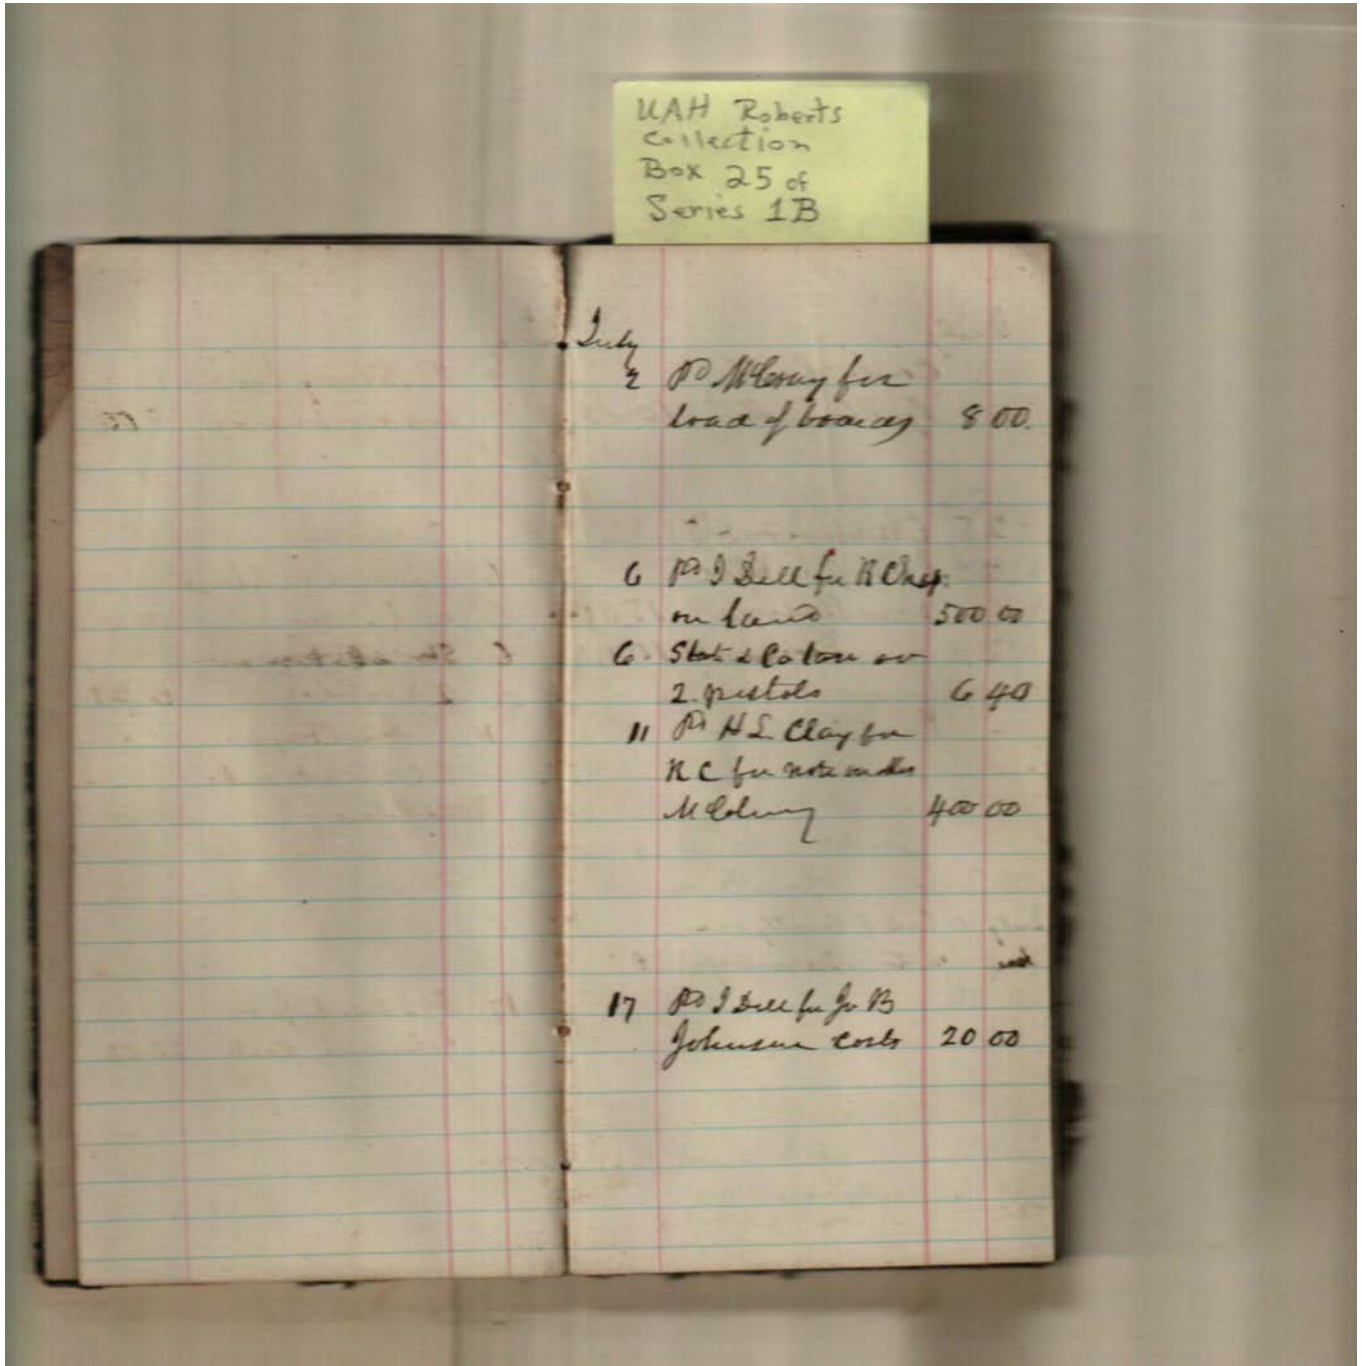 UAH Roberts
Collection
Box 25 of
Series 1B
July
2 Pd McCrary for
load of boards 8 00
6 Pd I Dill for R Chap.
on land 500 00
6 State & Co tax on
2 pistols 6 40
11 Pd H L Clay for
R C for note
400 00
17 Pd I Dill for Jo B
Johnson costs 20 00